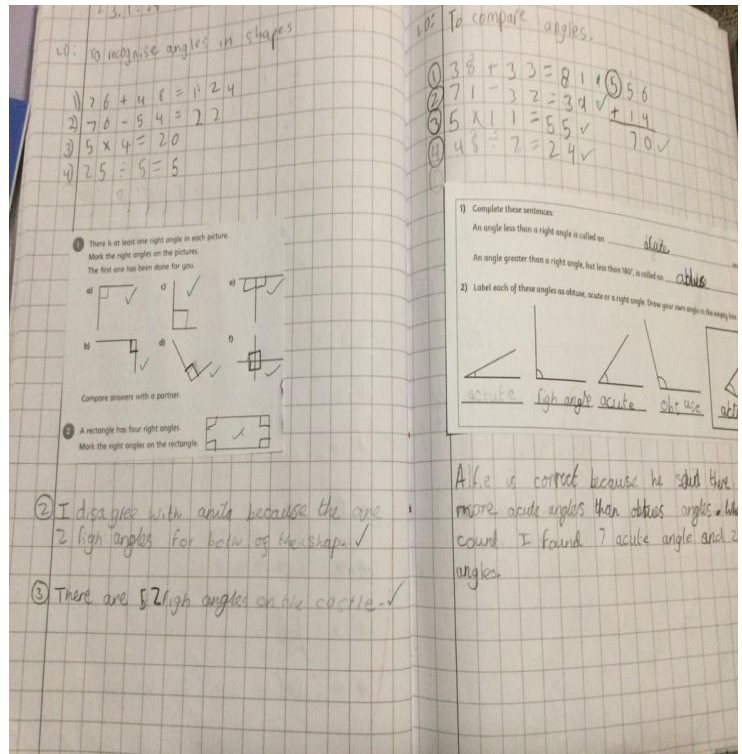 LO: To recognise angles in shapes
1) 76 + 48 = 124
2) 76 - 54 = 22
3) 5 x 4 = 20
4) 25 ÷ 5 = 5
1 There is at least one right angle in each picture.
Mark the right angles on the pictures.
The first one has been done for you.
a) c) e)
b) d) f)
Compare answers with a partner.
2 A rectangle has four right angles.
Mark the right angles on the rectangle.
2 I disagree with because the are
2 righ angles for both of the shape.
3 There are 2 righ angles on the castle.
LO: To compare angles.
1 38 + 33 = 81
2 71 - 32 = 39
3 5 x 11 = 55
4 48 ÷ 2 = 24
5 56
+ 14
70
1) Complete these sentences:
An angle less than a right angle is called an acute
An angle greater than a right angle, but less than 180°, is called an obtuse
2) Label each of these angles as obtuse, acute or a right angle. Draw your own angle in the empty box
righ angle acute obtuse
Alfie is correct because he said there
more acute angles than obtues angles.
count I found 7 acute angle and 2
angles.